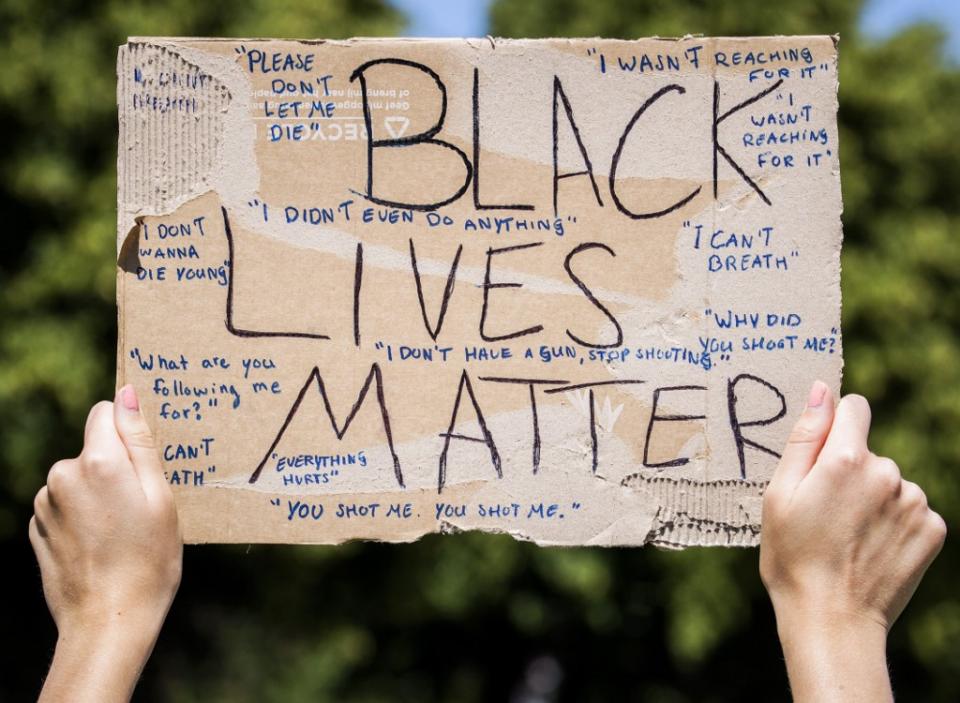 "PLEASE
DON'T
LET ME
DIE"
BLACK
"I WASN'T REACHING
FOR IT"
"I
WASN'T
REACHING
FOR IT"
"I DIDN'T EVEN DO ANYTHING"
"I DON'T
WANNA
DIE YOUNG"
LIVES
"I CAN'T
BREATH"
"WHY DID
YOU SHOOT ME?"
"I DON'T HAVE A GUN, STOP SHOOTING."
"What are you
following me
for?"
MATTER
CAN'T
EATH"
"EVERYTHING
HURTS"
"YOU SHOT ME. YOU SHOT ME."